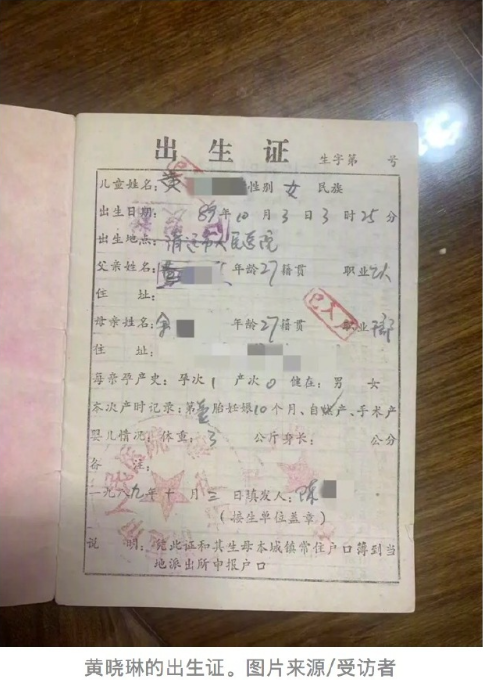 出生证 生字第 号
儿童姓名:黄 性别 女 民族
出生日期: 89年10月3日3时25分
出生地点:清远市人民医院
父亲姓名: 年龄27籍贯 职业
住 址:
已入
母亲姓名:余 年龄27籍贯 职业
住 址:
母亲孕产史:孕次1产次0健在:男 女
本次产时记录:第 胎妊娠10个月、自然产、手术产
婴儿情况:体重:3 公斤身长: 公分
备 注:
一九八九年十月三日填发人:陈
(接生单位盖章)
说 明:凭此证和其生母本城镇常住户口簿到当
地派出所申报户口
黄晓琳的出生证。图片来源/受访者